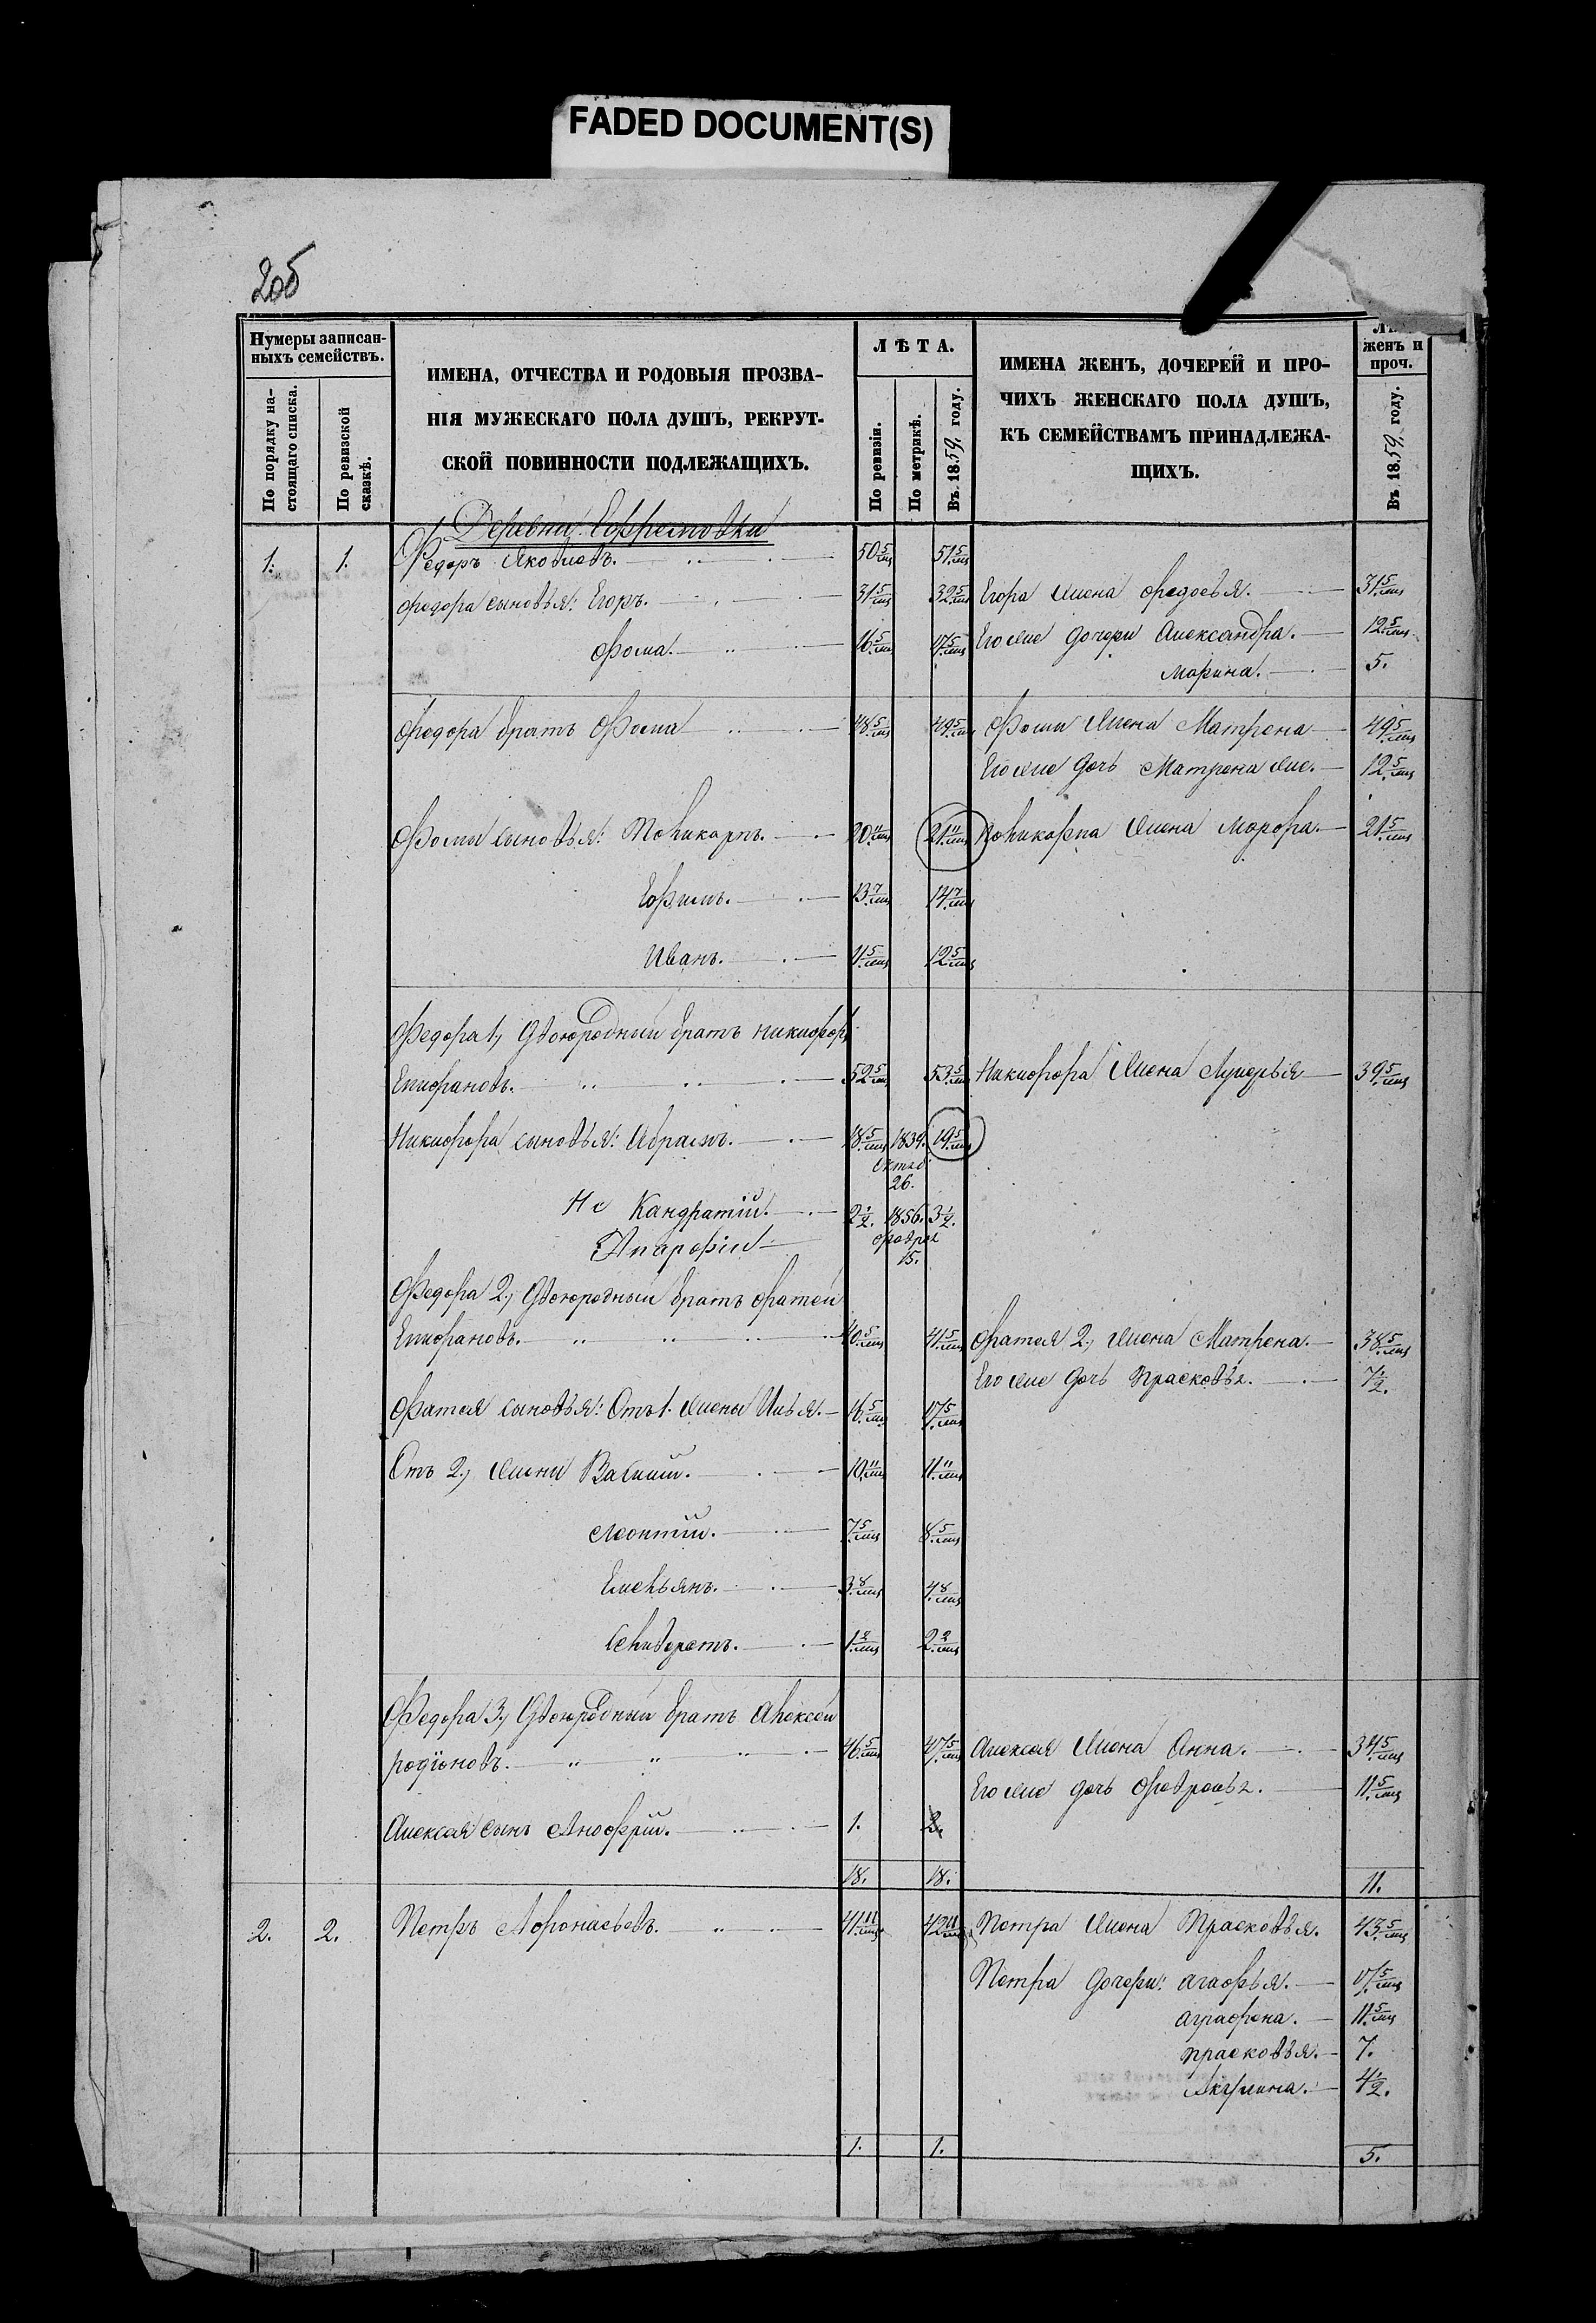 FADED DOCUMENT(S)
206
Нумеры записан-
ныхъ семействъ.
По порядку на-
стоящаго списка.
По ревизской
сказкѣ.
ИМЕНА, ОТЧЕСТВА И РОДОВЫЯ ПРОЗВА-
НІЯ МУЖЕСКАГО ПОЛА ДУШЪ, РЕКРУТ-
СКОЙ ПОВИННОСТИ ПОДЛЕЖАЩИХЪ.
ЛѢТА.
По ревизіи.
По метрикѣ.
Въ 1859. году.
ИМЕНА ЖЕНЪ, ДОЧЕРЕЙ И ПРО-
ЧИХЪ ЖЕНСКАГО ПОЛА ДУШЪ,
КЪ СЕМЕЙСТВАМЪ ПРИНАДЛЕЖА-
ЩИХЪ.
женъ и
проч.
Въ 1859. году.
Деревни Ефремовки
1. 1. Федоръ Яковлевъ. 50 5/мц 51 5/мц
Федора сыновья: Егоръ. 31 5/мц 32 5/мц Егора жена Федосья. 31 5/мц
Фома. 16 5/мц 17 5/мц Его же дочери Александра. 12 5/мц
Марина. 5.
Федора братъ Фома 48 5/мц 49 5/мц Фомы жена Матрена 49 5/мц
Его же дочь Матрена же. 12 5/мц
Фомы сыновья: Поликарпъ. 20 11/мц 21 11/мц Поликарпа жена Марфа. 21 5/мц
Ефимъ. 13 7/мц 14 7/мц
Иванъ. 11 5/мц 12 5/мц
Федора 1, двоюродный братъ Никифоръ
Епифановъ. 52 5/мц 53 5/мц Никифора жена Лукерья 39 5/мц
Никифора сыновья: Абрамъ. 18 5/мц 1839. 19 5/мц
Октяб
26.
Кандратій. 2 1/2. 1856. 3 1/2.
февраля
15.
Федора 2, двоюродный братъ Фатей
Епифановъ. 40 5/мц 41 5/мц Фатея 2, жена Матрена. 38 5/мц
Его же дочь Прасковья. 7 1/2.
Фатея сыновья: Отъ 1. жены Илья. 16 5/мц 17 5/мц
Отъ 2, жены Василій. 10 11/мц 11 11/мц
Леонтій. 7 5/мц 8 5/мц
Емельянъ. 3 8/мц 4 8/мц
Селиверстъ. 1 2/мц 2 2/мц
Федора 3, двоюродный братъ Алексей
Родіоновъ. 46 5/мц 47 5/мц Алексея жена Анна. 34 5/мц
Его же дочь Февронья. 11 5/мц
Алексея сынъ Анофрій. 1. 2.
18. 18. 11.
2. 2. Петръ Афонасьевъ. 41 11/мц 42 11/мц Петра жена Прасковья. 43 5/мц
Петра дочери: Агафья. 17 5/мц
Аграфена. 11 5/мц
Прасковья. 7.
Акулина. 4 1/2.
1. 1. 5.